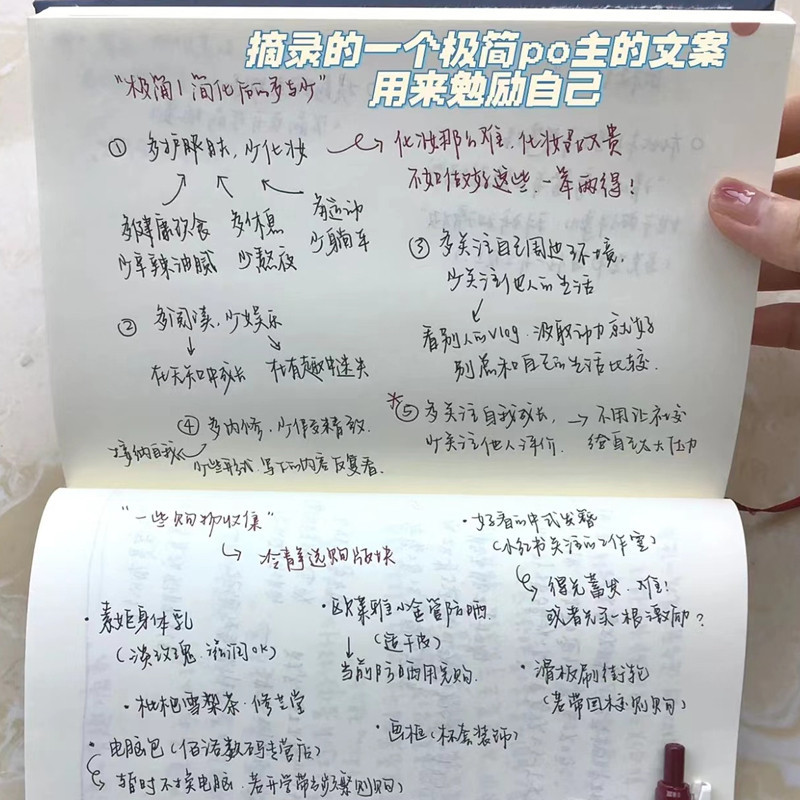 摘录的一个极简po主的文案
用来勉励自己
"极简 | 简化后的多与少"
① 多护眼肤,少化妆
化妆那么难,化妆品又贵
不如做好这些,一举两得!
多健康饮食
少辛辣油腻
多休息
少熬夜
多运动
少躺平
② 多阅读,少娱乐
在无知中成长
在有趣中迷失
③ 多关注自己周边环境,
少关注他人的生活
看别人的vlog,汲取动力就好
别总和自己的生活比较.
④ 多内修,少作
接纳自我
少些形式,写下的内容反复看.
⑤ 多关注自我成长,
少关注他人评价.
不用让社交
给自己太大压力
"一些购物收集"
冷静选购版块
·素姬身体乳
(淡玫瑰、滋润OK)
·枇杷雪梨茶·修芝堂
·电脑包(佰诺数码专营店)
暂时不换电脑,若开学带去频繁则购)
·欧莱雅小金管防晒
(适干皮)
当前防晒用完购.
·画框(杯套装饰)
·好看的中式发簪
(小红书关注的工作室)
得先蓄发、难!
或者先买一根激励?
·滑板刷街鞋
(若带回标则购)